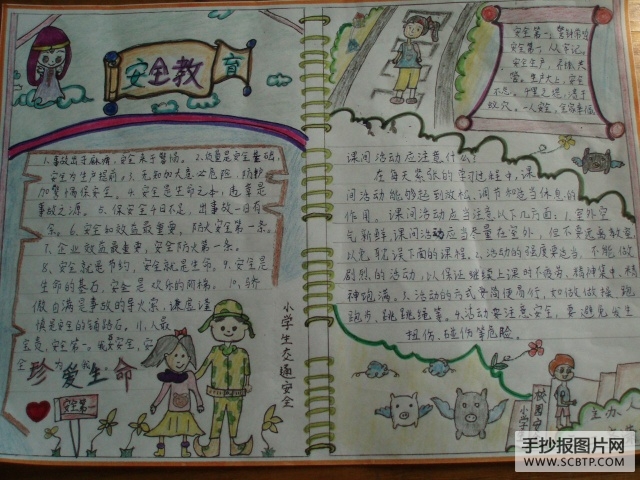 安全教育
1.事故出于麻痹,安全来于警惕。2.质量是安全基础,
安全为生产提前。3.无知加大意必危险,防护
加警惕保安全。4.安全是生命之本,违章是
事故之源。5.保安全千日不足,出事故一日有
余。6.安全和效益最重要,防火安全第一条。
7.企业效益最重要,安全防火第一条。
8.安全就是节约,安全就是生命。9.安全是
生命的基石,安全是欢乐的阶梯。10.骄
傲自满是事故的导火索,谦虚谨
慎是安全的铺路石。11.人最
珍爱生命
安全第一
小学生交通安全
安全第一,警钟常鸣
安全第一,从牢记。
课间活动应注意什么?
在每天紧张的学习过程中,课
间活动能够起到放松、调节和适当休息的
作用。课间活动应当注意以下几方面:1.室外空
气新鲜,课间活动应当尽量在室外,但不要远离教室,
以免耽误下面的课程。2.活动的强度要适当,不能做
剧烈的活动,以保证继续上课时不疲劳、精神集中、精
神饱满。3.活动的方式要简便易行,如做做操、跑
跑步、跳跳绳等。4.活动要注意安全,要避免发生
扭伤、碰伤等危险。
主办人
手抄报图片网
WWW.SCBTP.COM